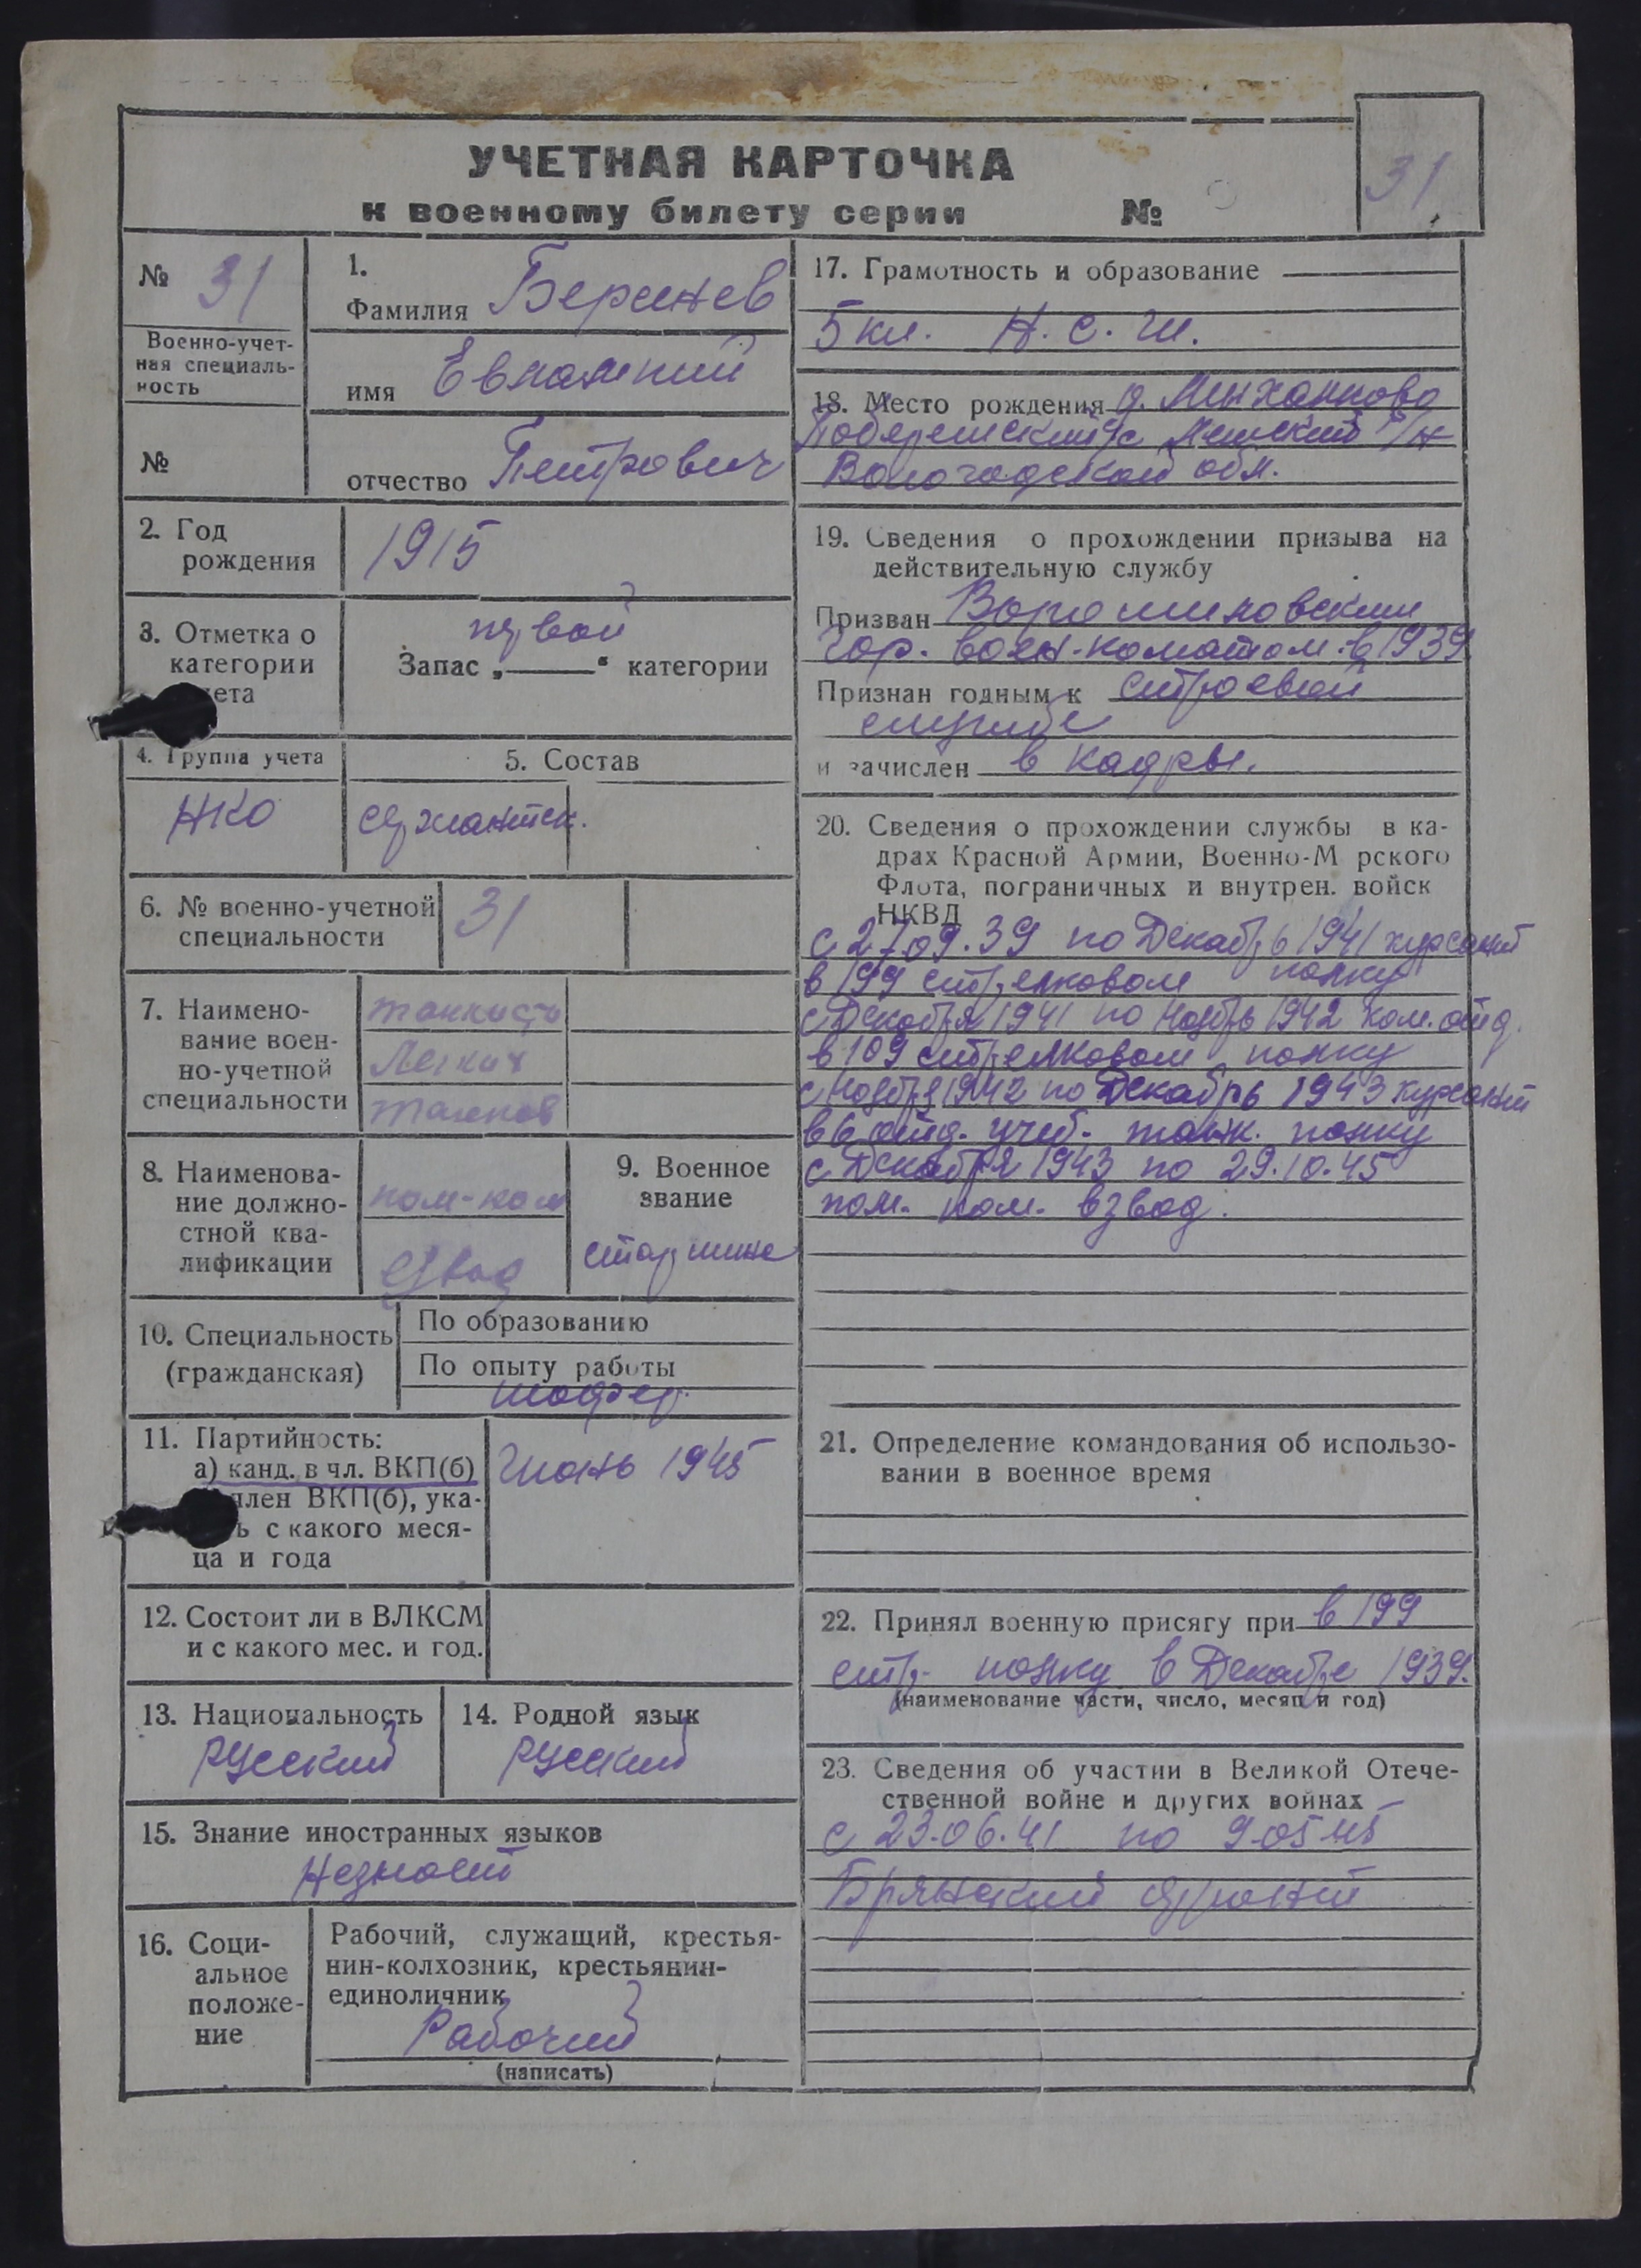 УЧЕТНАЯ КАРТОЧКА
к военному билету серии №
31
№ 31
Военно-учет-
ная специаль-
ность
№
1.
Фамилия
имя Евлампий
отчество Петрович
2. Год
рождения
1915
3. Отметка о
категории
ета
первой
Запас „——“ категории
4. Группа учета
НКО
5. Состав
сержантск.
6. № военно-учетной
специальности
31
7. Наимено-
вание воен-
но-учетной
специальности
танкист
Легких
танков
8. Наименова-
ние должно-
стной ква-
лификации
пом-ком
взвод
9. Военное
звание
старшина
10. Специальность
(гражданская)
По образованию
По опыту работы
шофер.
11. Партийность:
а) канд. в чл. ВКП(б)
член ВКП(б), ука-
ь с какого меся-
ца и года
Июнь 1945
12. Состоит ли в ВЛКСМ
и с какого мес. и год.
13. Национальность
русский
14. Родной язык
русский
15. Знание иностранных языков
Незнает
16. Соци-
альное
положе-
ние
Рабочий, служащий, крестья-
нин-колхозник, крестьянин-
единоличник
Рабочий
(написать)
17. Грамотность и образование
5 кл. Н. с. ш.
18. Место рождения д.
с/с р/н
Вологодской обл.
19. Сведения о прохождении призыва на
действительную службу
Призван Ворошиловским
Гор. воен-коматом в 1939
Признан годным к строевой
службе
и зачислен в кадры.
20. Сведения о прохождении службы в ка-
драх Красной Армии, Военно-М рского
Флота, пограничных и внутрен. войск
НКВД
с 27.09.39 по Декабрь 1941 курсант
в 199 стрелковом полку
с Декабря 1941 по Ноябрь 1942 ком. отд.
в 109 стрелковом полку
с Ноября 1942 по Декабрь 1943 курсант
в 6 отд. учеб. танк. полку
с Декабря 1943 по 29.10.45
пом. ком. взвод.
21. Определение командования об использо-
вании в военное время
22. Принял военную присягу при в 199
стр. полку в Декабре 1939.
(наименование части, число, месяц и год)
23. Сведения об участии в Великой Отече-
ственной войне и других войнах
с 23.06.41 по 9.05 45
Брянский фронт